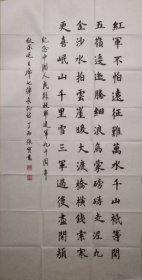 紅軍不怕遠征難萬水千山祇等閒
五嶺逶迤騰細浪烏蒙磅礴走泥丸
金沙水拍雲崖暖大渡橋橫鐵索寒
更喜岷山千里雪三軍過後盡開顏
紀念中國人民解放軍建軍九十周年
敬录毛主席七律長征詩丁酉張